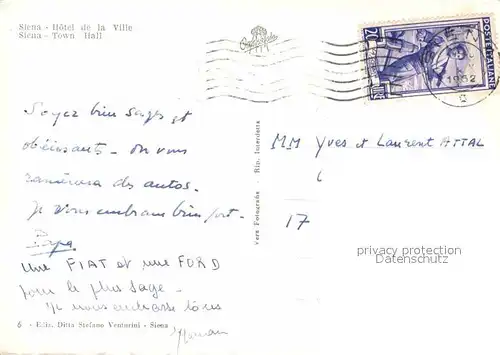 Siena - Hôtel de la Ville
Siena - Town Hall
20
POSTE ITALIANE
1952
Soyez bien sages et
obéissants - on vous
ramènera des autos.
Je vous embrasse bien fort.
Papa
Une FIAT et une FORD
pour le plus sage -
Je vous embrasse tous
Maman
6 - Ediz. Ditta Stefano Venturini - Siena
Vera Fotografia - Rip. Interdetta
MM Yves et Laurent ATTAL
17
privacy protection
Datenschutz